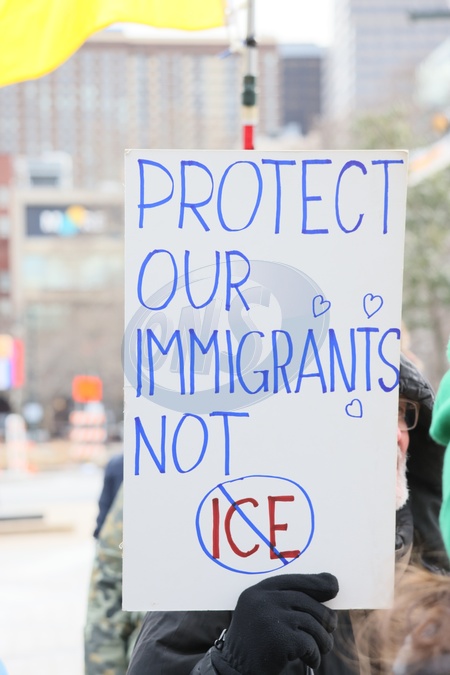 PROTECT
OUR
IMMIGRANTS
NOT
ICE